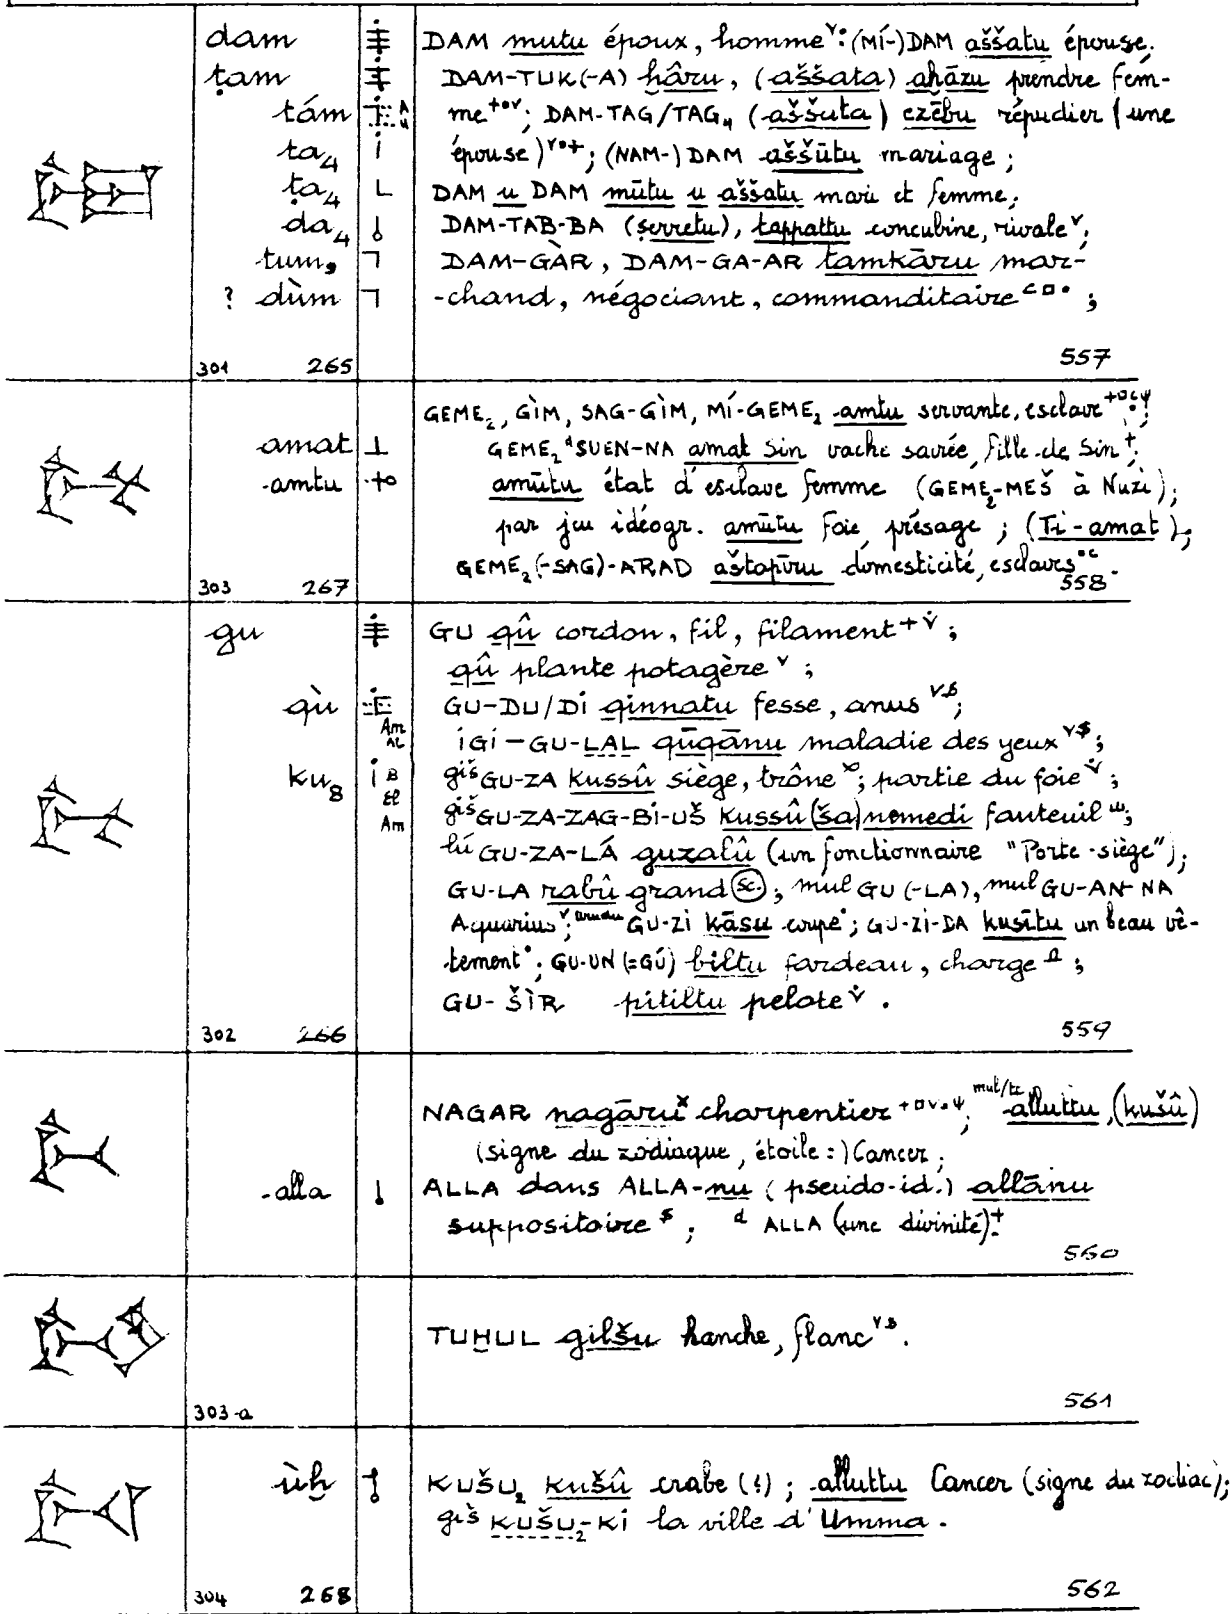 dam DAM mutu époux, homme ᵛ; (MÍ-)DAM aššatu épouse.
ṭam DAM-TUK(-A) ḫâru, (aššata) aḫāzu prendre fem-
tám me⁺ᵛ; DAM-TAG/TAG₄ (aššata) ezēbu répudier (une
ta₄ épouse)ᵛ⁺; (NAM-)DAM aššūtu mariage;
ṭa₄ DAM u DAM mūtu u aššatu mari et femme;
da₄ DAM-TAB-BA (ṣerretu), tappattu concubine, rivale ᵛ;
tum₉ DAM-GÀR, DAM-GA-AR tamkāru mar-
? dùm -chand, négociant, commanditaire;
301 265 557
GEME₂, GÌM, SAG-GÌM, MÍ-GEME₂ amtu servante, esclave
amat GEME₂ ᵈSUEN-NA amat Sin vache sacrée, fille de Sin⁺;
-amtu amūtu état d'esclave femme (GEME₂-MEŠ à Nuzi);
par jeu idéogr. amūtu foie, présage; (Ti-amat);
GEME₂(-SAG)-ARAD aštapīru domesticité, esclaves
303 267 558
gu GU qû cordon, fil, filament⁺ᵛ;
qû plante potagère ᵛ;
qù Am AL GU-DU/DI qinnatu fesse, anus;
IGI-GU-LAL qūqānu maladie des yeux;
ku₈ B El Am giš GU-ZA kussû siège, trône; partie du foie ᵛ;
giš GU-ZA-ZAG-BI-UŠ kussû (ša) nemedi fauteuil;
lú GU-ZA-LÁ guzalû (un fonctionnaire "Porte-siège");
GU-LA rabû grand (sc.); mul GU(-LA), mul GU-AN-NA
Aquarius ᵛ; urudu GU-ZI kāsu coupe; GU-ZI-DA kusītu un beau vê-
tement; GU-UN (=GÚ) biltu fardeau, charge;
GU-ŠÌR pitiltu pelote ᵛ.
302 266 559
NAGAR nagāru charpentier; mul/te alluttu, (kušû)
(signe du zodiaque, étoile:) Cancer;
-alla ALLA dans ALLA-nu (pseudo-id.) allānu
suppositoire; ᵈ ALLA (une divinité)⁺.
560
TUḪUL gilšu hanche, flanc.
303-a 561
ùḫ KUŠU₂ kušû crabe (?); alluttu Cancer (signe du zodiac);
giš KUŠU₂-KI la ville d'Umma.
304 268 562